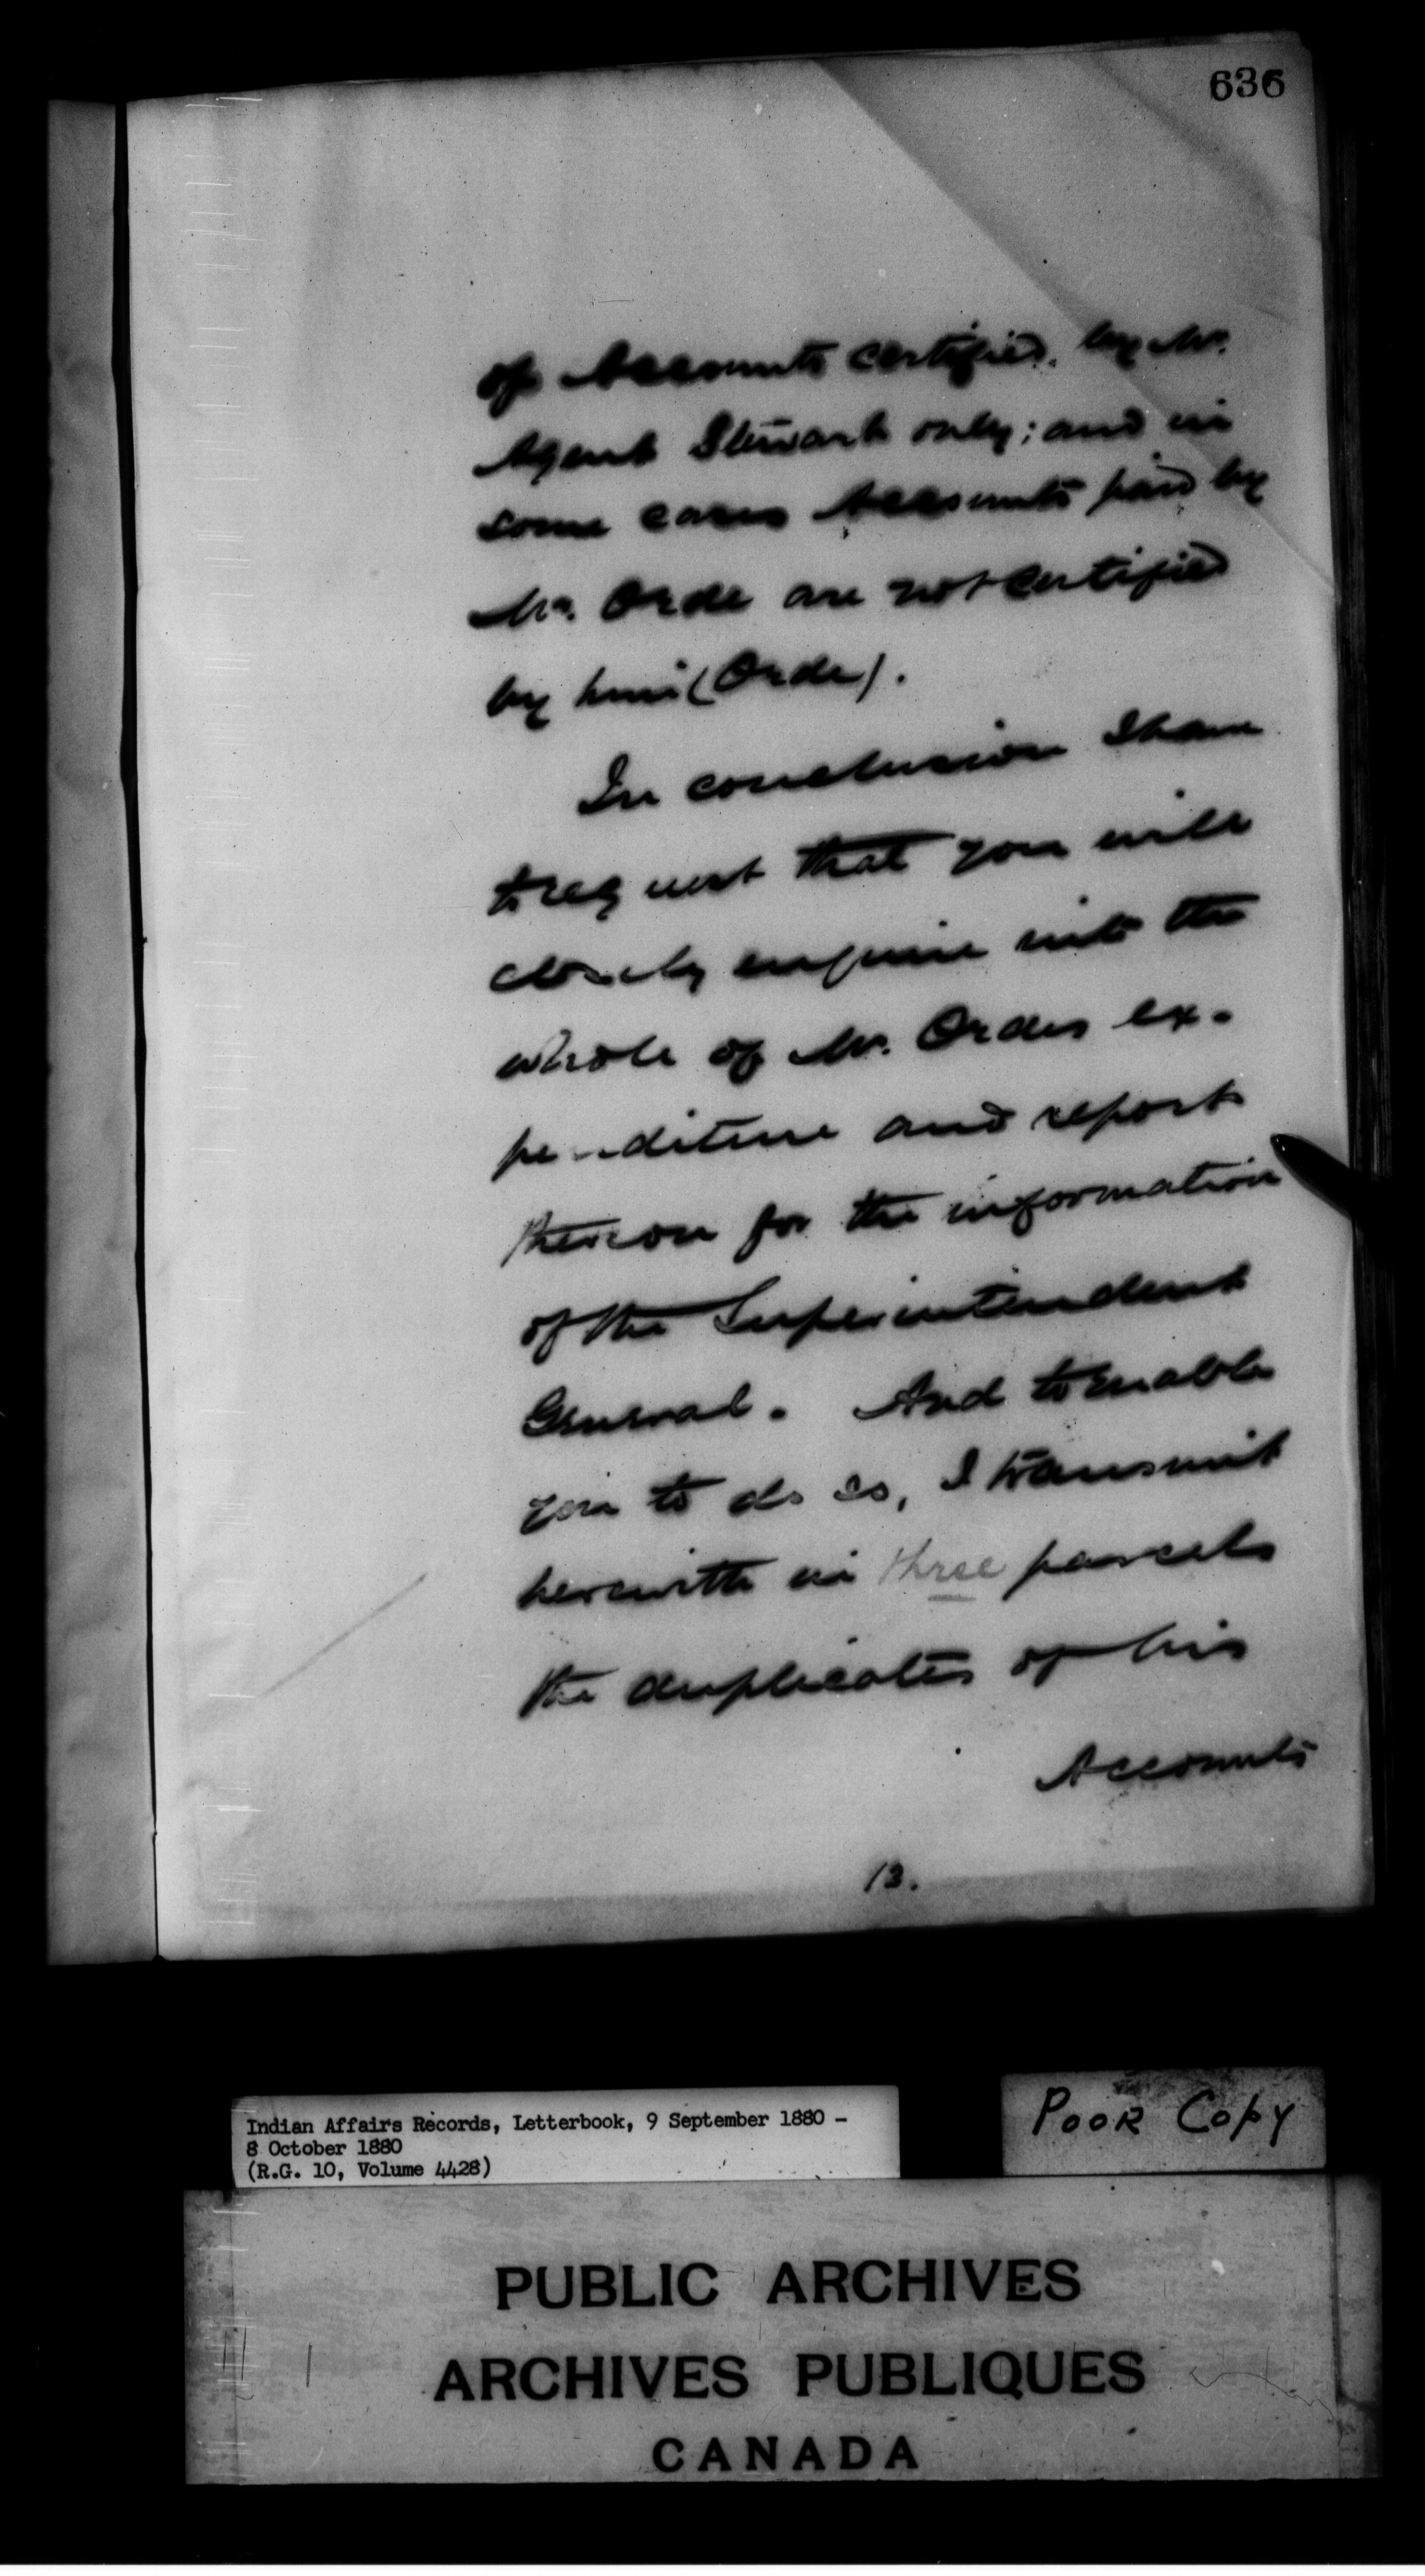 636
of Accounts certified by Mr.
Agent Stewart only; and in
some cases Accounts paid by
Mr. Orde are not certified
by him (Orde).
In conclusion I have
to request that you will
closely enquire into the
whole of Mr. Ordes ex-
penditure and report
thereon for the information
of the Superintendent
General. And to enable
you to do so, I transmit
herewith in three parcels
the duplicates of his
Accounts
13.
Indian Affairs Records, Letterbook, 9 September 1880 -
8 October 1880
(R.G. 10, Volume 4428)
POOR COPY
PUBLIC ARCHIVES
ARCHIVES PUBLIQUES
CANADA